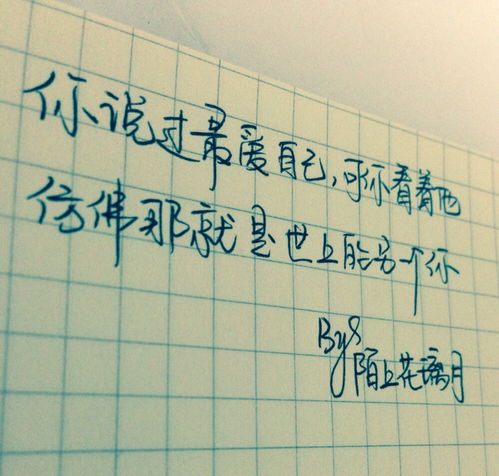 你说过最爱自己,可你看着他
仿佛那就是世上的另一个你
By
陌上花璃月